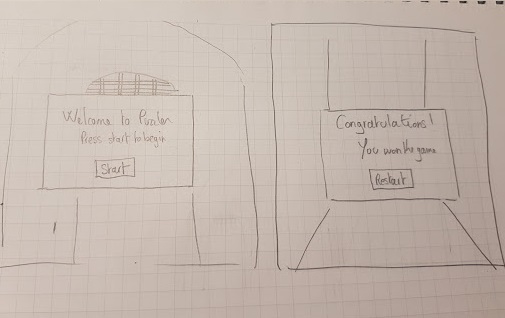 Welcome to
Press start to begin
Start
Congratulations!
You won the game
Restart